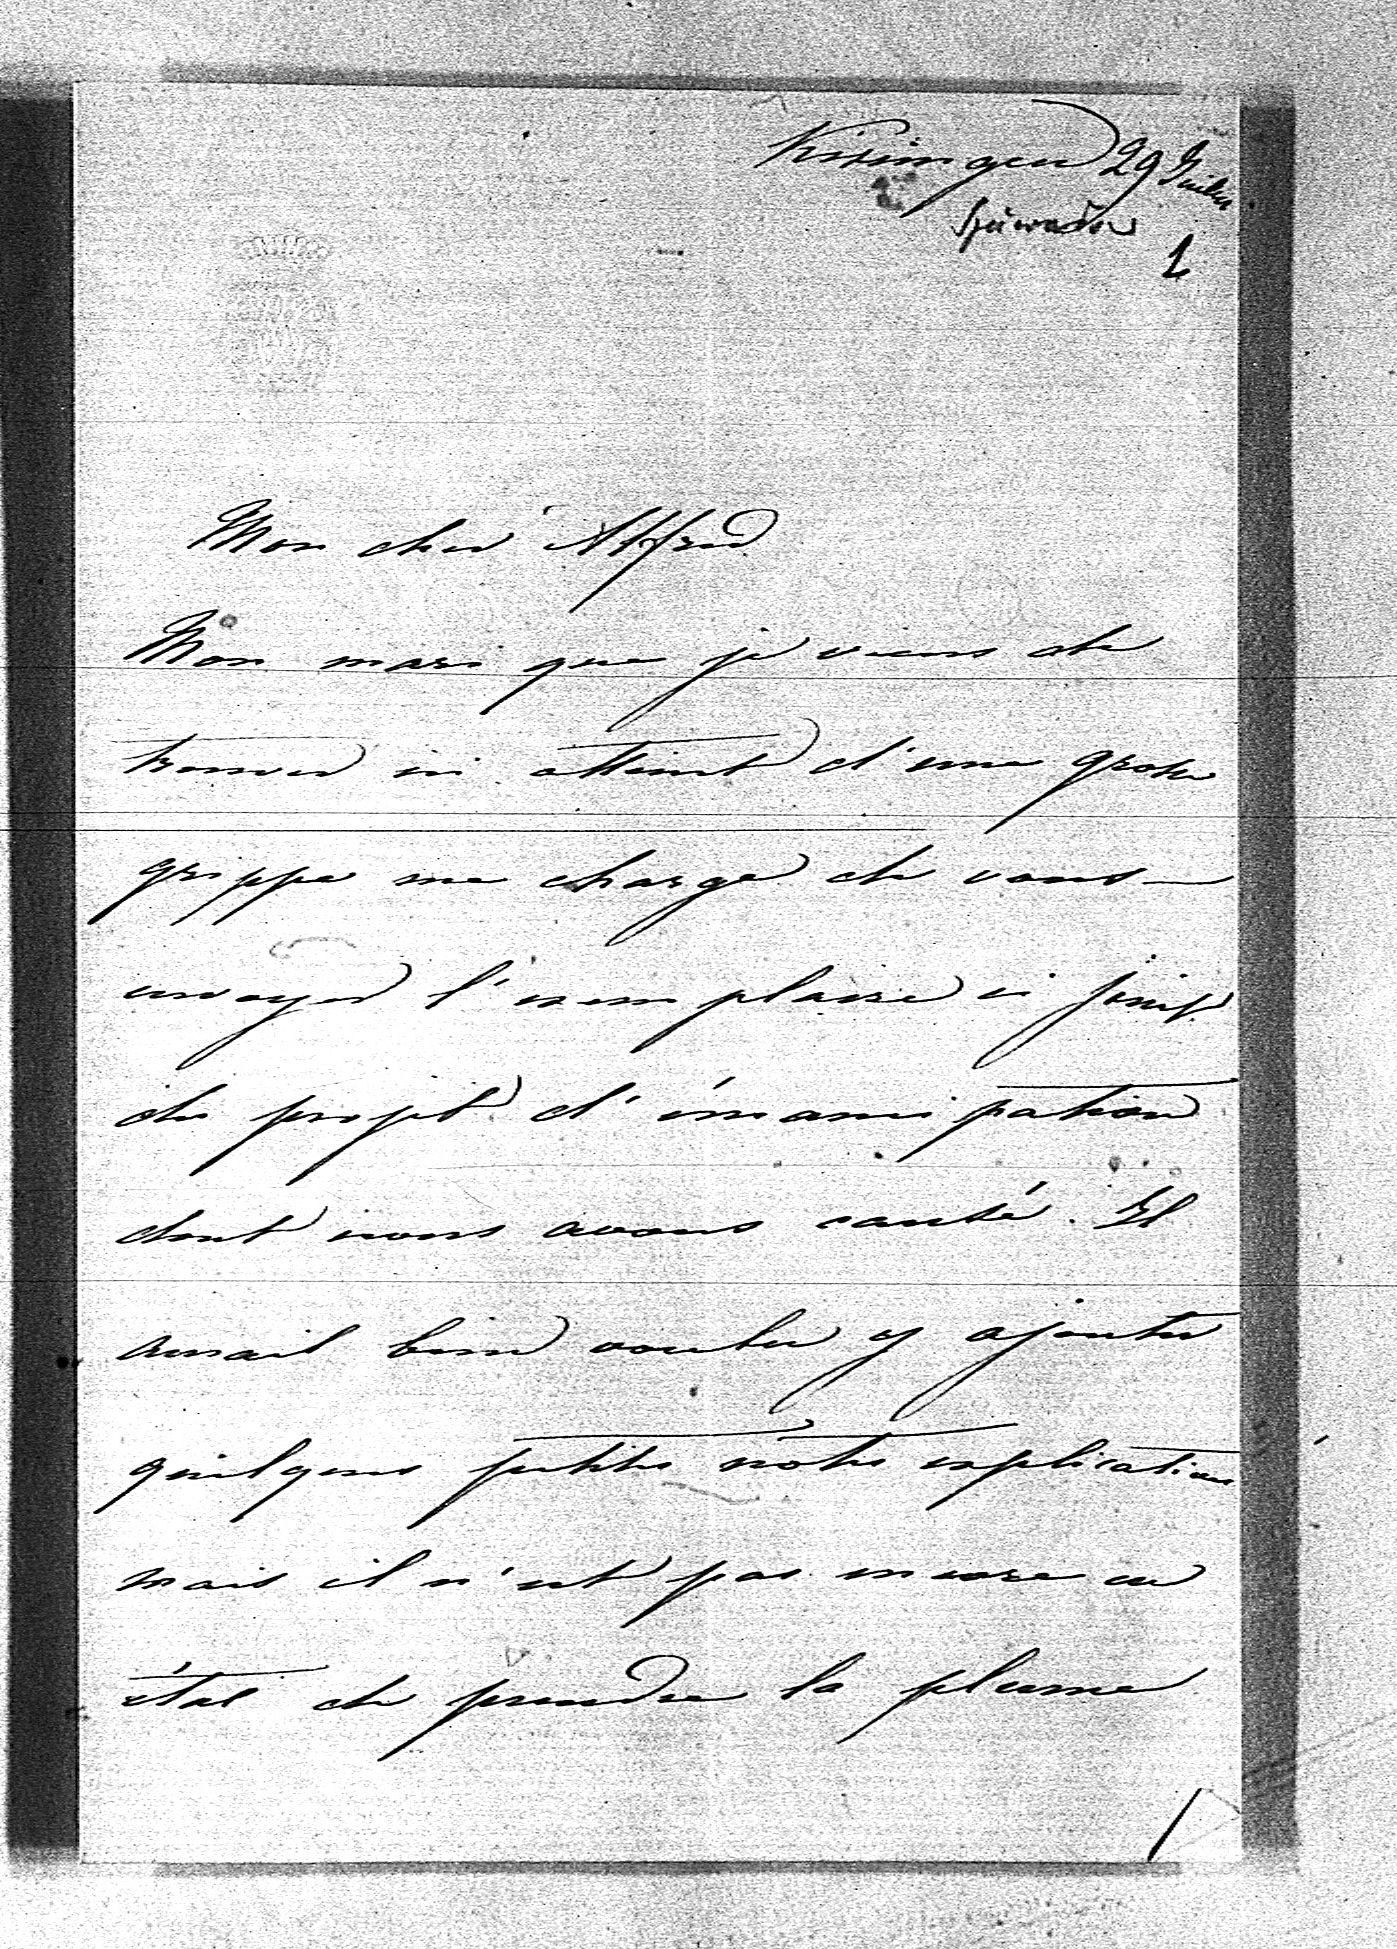 Kissingen 29 Juillet
1
Mon cher Alfred
Mon mari que je viens de
trouver ici atteint d'une grosse
grippe me charge de vous
envoyer l'exemplaire ci joint
du projet d'émancipation
dont nous avons causé. Il
aurait bien voulu y ajouter
quelques petites notes explicatives
mais il n'est pas encore en
état de prendre la plume